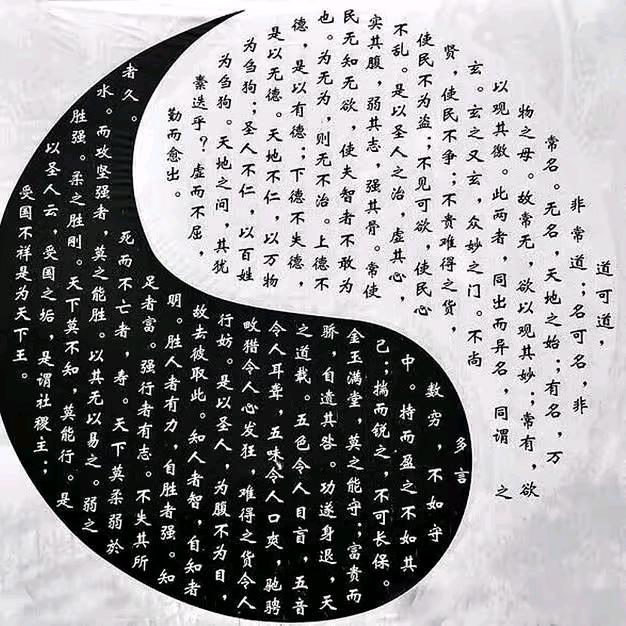 道可道，
非常道；名可名，非
常名。无名，天地之始；有名，万
物之母。故常无，欲以观其妙；常有，欲
以观其徼。此两者，同出而异名，同谓之
玄。玄之又玄，众妙之门。不尚
贤，使民不争；不贵难得之货，
使民不为盗；不见可欲，使民心
不乱。是以圣人之治，虚其心，
实其腹，弱其志，强其骨。常使
民无知无欲，使夫智者不敢为
也。为无为，则无不治。上德不
德，是以有德；下德不失德，
是以无德。天地不仁，以万物
为刍狗；圣人不仁，以百姓
为刍狗。天地之间，其犹
橐迭乎？虚而不屈，
勤而愈出。
多言
数穷，不如守
中。持而盈之不如其
己；揣而锐之，不可长保。
金玉满堂，莫之能守；富贵而
骄，自遗其咎。功遂身退，天
之道哉。五色令人目盲，五音
令人耳聋，五味令人口爽，驰骋
畋猎令人心发狂，难得之货令人
行妨。是以圣人，为腹不为目，
故去彼取此。知人者智，自知者
明。胜人者有力，自胜者强。知
足者富。强行者有志。不失其所
者久。死而不亡者，寿。天下莫柔弱於
水。而攻坚强者，莫之能胜。以其无以易之。弱之
胜强。柔之胜刚。天下莫不知，莫能行。是
以圣人云，受国之垢，是谓社稷主；
受国不祥是为天下王。